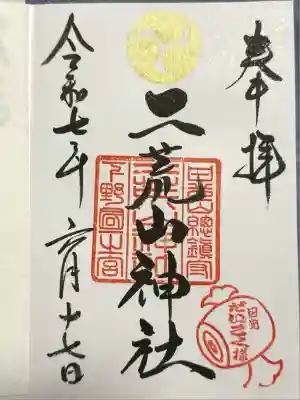 奉拝
二荒山神社
日光総鎮守
下野國一宮
日光
だいこく様
令和七年
六月十七日